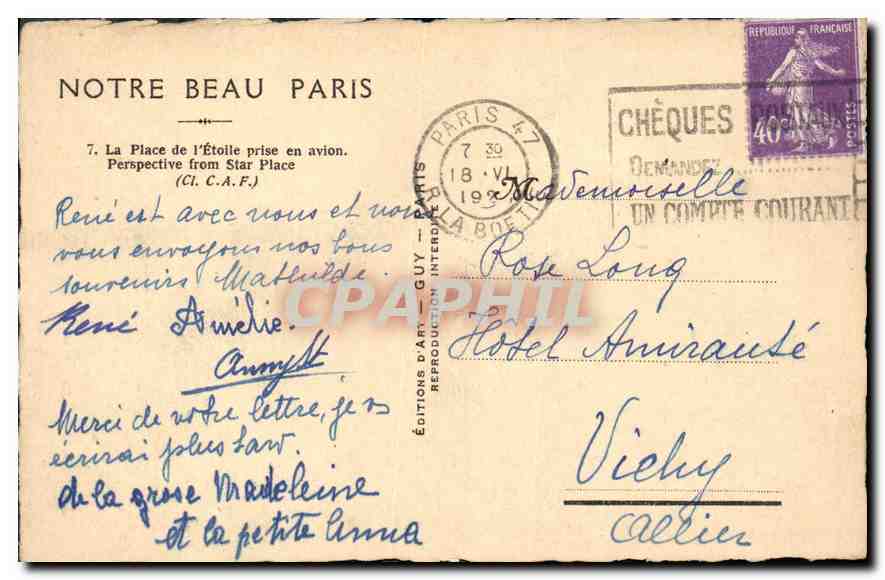 NOTRE BEAU PARIS
7. La Place de l'Étoile prise en avion.
Perspective from Star Place
(Cl. C.A.F.)
René est avec nous et nous
vous envoyons nos bons
souvenirs Mathilde.
René Amélie.
Merci de votre lettre, je vs
écrirai plus tard.
de la grose Madeleine
et la petite Anna
ÉDITIONS D'ART — GUY — PARIS
REPRODUCTION INTERDITE
PARIS 47
7 30
18 · VI
R. LA BOETIE
RÉPUBLIQUE FRANÇAISE
40c
POSTES
CHÈQUES POSTAUX
DEMANDEZ
UN COMPTE COURANT
Mademoiselle
Rose Long
Hôtel Amirauté
Vichy
Allier
CPAPHIL